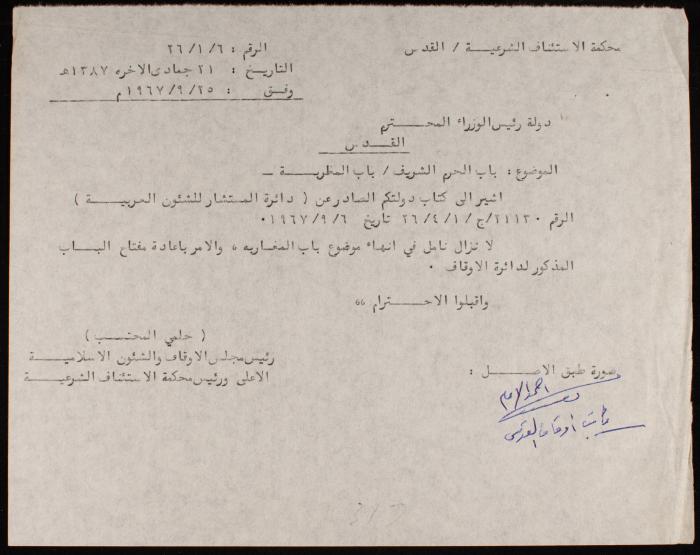 محكمة الاستئناف الشرعية / القدس
الرقم : ٢٦/١/٦
التاريخ : ٢١ جمادى الاخره ١٣٨٧هـ
وفق : ١٩٦٧/٩/٢٥م
دولة رئيس الوزراء المحترم
القدس
الموضوع : باب الحرم الشريف / باب المطرية –
اشير الى كتاب دولتكم الصادر عن ( دائرة المستشار للشئون العربية )
الرقم ٢١١٣٠/ج/٢٦/٤/١ تاريخ ١٩٦٧/٩/٦٠
لا نزال نامل في انهاء موضوع باب المغاربه ، والامر باعادة مفتاح الباب
المذكور لدائرة الاوقاف .
واقبلوا الاحترام ،،
( حلمي المحتسب )
رئيس مجلس الاوقاف والشئون الاسلامية
الاعلى ورئيس محكمة الاستئناف الشرعية
صورة طبق الاصل :
كاتب اوقاف القدس